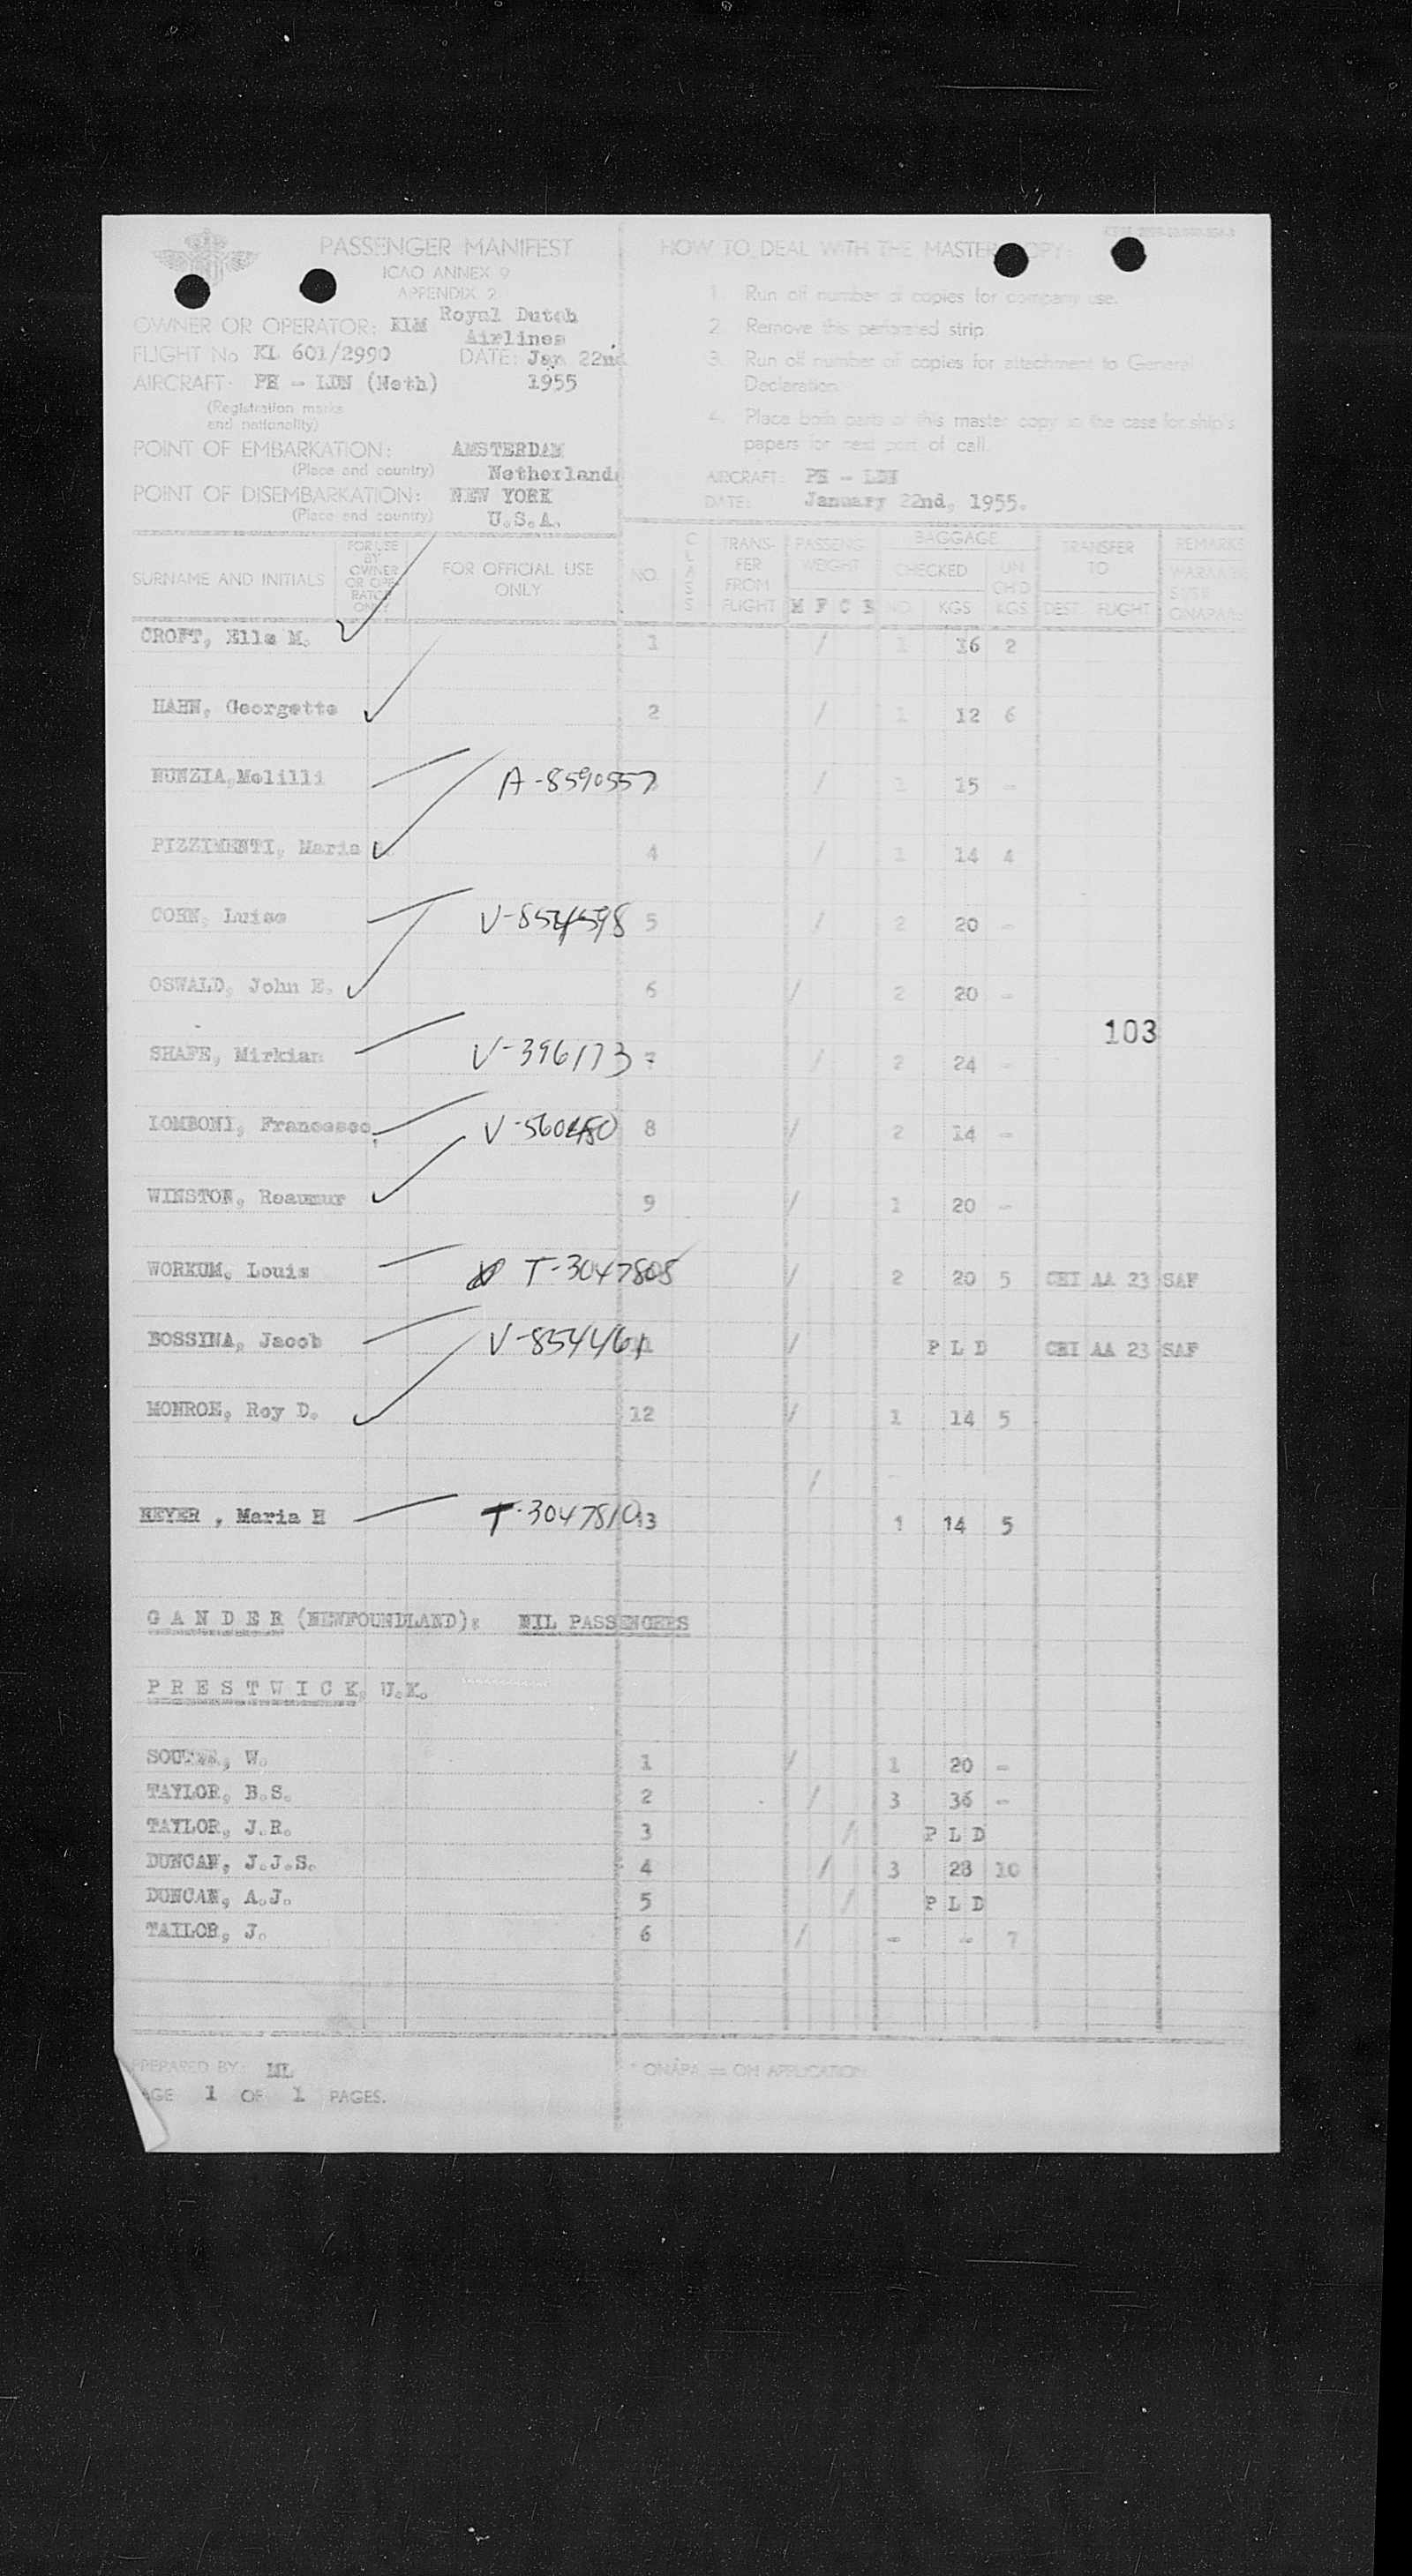 PASSENGER MANIFEST
ICAO ANNEX 9
APPENDIX 2
OWNER OR OPERATOR: KLM Royal Dutch
Airlines
FLIGHT No KL 601/2990 DATE: Jan 22nd
AIRCRAFT: PH - LDN (Neth) 1955
(Registration marks
and nationality)
POINT OF EMBARKATION: AMSTERDAM
(Place and country) Netherlands
POINT OF DISEMBARKATION: NEW YORK
(Place and country) U.S.A.
HOW TO DEAL WITH THE MASTER COPY:
1. Run off number of copies for company use.
2. Remove this perforated strip
3. Run off number of copies for attachment to General
Declaration
4. Place both parts of this master copy in the case for ship's
papers for next port of call.
AIRCRAFT: PH - LDN
DATE: January 22nd, 1955.
SURNAME AND INITIALS FOR USE BY OWNER OR OPERATOR ONLY FOR OFFICIAL USE ONLY NO. CLASS TRANSFER FROM FLIGHT PASSENG. WEIGHT M F C B BAGGAGE CHECKED NO. KGS UN CH'D KGS TRANSFER TO DEST. FLIGHT REMARKS
CROFT, Ella M. 1 / 1 16 2
HAHN, Georgette 2 / 1 12 6
NUNZIA, Melilli A-8590557 / 1 15 -
PIZZIMENTI, Maria 4 / 1 14 4
COHN, Luise V-854598 5 / 2 20 -
OSWALD, John E. 6 / 2 20 -
103
SHAFE, Mirkian V-396173 7 / 2 24 -
LOMBONI, Francesco V-560480 8 / 2 14 -
WINSTON, Roaumur 9 / 1 20 -
WORKUM, Louis T-3047808 / 2 20 5 CHI AA 23 SAF
BOSSINA, Jacob V-854461 / P L D CHI AA 23 SAF
MONROE, Roy D. 12 / 1 14 5
/
HEYER , Maria H T-3047810 13 1 14 5
G A N D E R (NEWFOUNDLAND): NIL PASSENGERS
P R E S T W I C K, U.K.
SOUTER, W. 1 / 1 20 -
TAYLOR, B.S. 2 / 3 36 -
TAYLOR, J.R. 3 / P L D
DUNCAN, J.J.S. 4 / 3 28 10
DUNCAN, A.J. 5 / P L D
TAILOR, J. 6 / - - 7
PREPARED BY: ML
PAGE 1 OF 1 PAGES.
* ONÁPA = ON APPLICATION